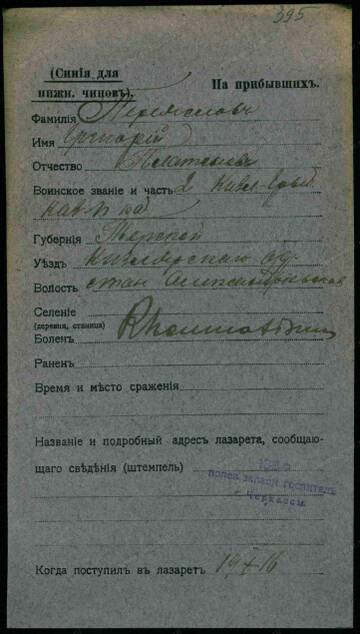 395
(Синія для
нижн. чиновъ).
На прибывшихъ.
Фамилія Переясловъ
Имя Григорій
Отчество
Воинское званіе и часть 2
Губернія Терской
Уѣздъ Кизлярскаго
Волость стан
Селеніе
(деревня, станица)
Боленъ Rheumatismus
Раненъ
Время и мѣсто сраженія
Названіе и подробный адресъ лазарета, сообщаю-
щаго свѣдѣнія (штемпель)
полев. запасн. госпиталь
г. Черкассы.
Когда поступилъ въ лазаретъ 19/X 16